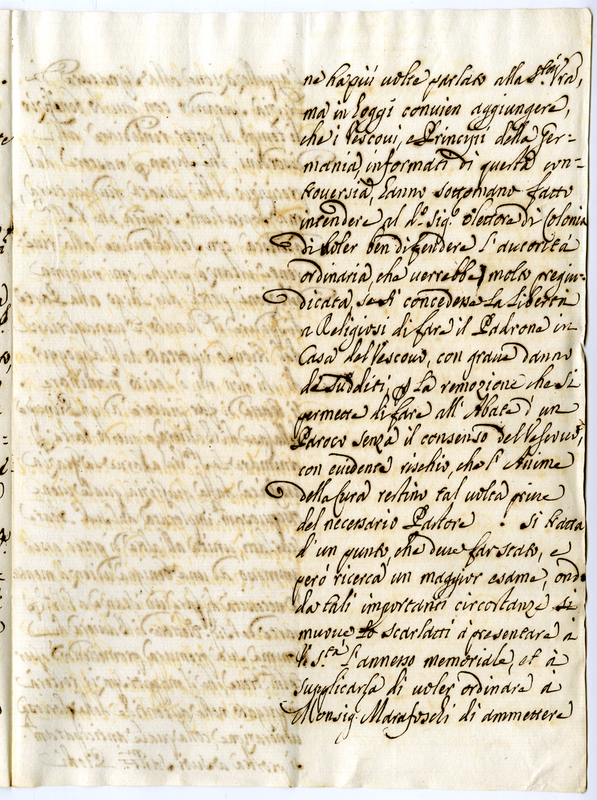 ne ha più volte parlato alla S.tà Vra,
ma in hoggi convien aggiungere,
che i Vescovi, e Principi della Ger-
mania, informati di questa con-
troversia, hanno sottomano fatto
intendere al d.o Sig.r Elettore di Colonia
di voler ben difendere l'autorità
ordinaria, che verrebbe molto pregiu-
dicata, se si concedesse la libertà
a Religiosi di fare il Padrone in
Casa del Vescovo, con grave danno
de sudditi; la remozione che si
permette di fare all'Abate d'un
Paroco senza il consenso del Vescovo,
con evidente rischio, che l'Anime
della Cura restino tal volta prive
del necessario Pastore. Si tratta
d'un punto, che deve far stato, e
però ricerca un maggior esame, onde
da tali importanti circostanze si
muove lo Scarlatti à presentare à
V. S.tà l'annesso memoriale, et à
supplicarla di voler ordinare à
Monsig.r Marafoschi di ammettere